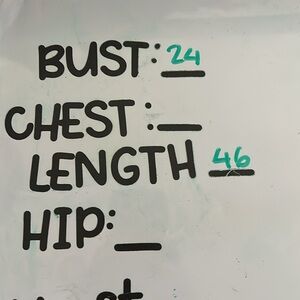 BUST: 24
CHEST:
LENGTH 46
HIP: